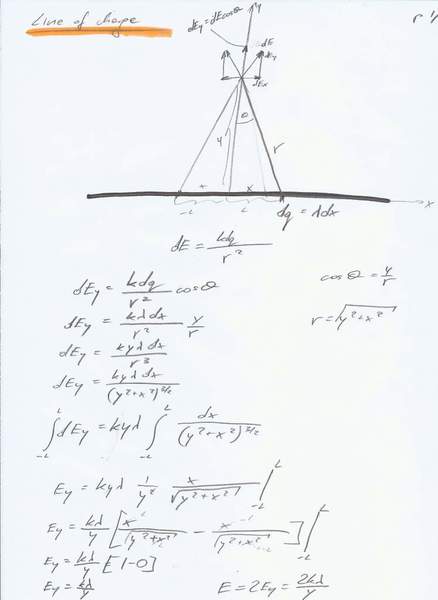 Line of charge
r
y
dEy = dE cosθ
dE
dEy
dEx
θ
y
r
x
x
-L
L
dq = λdx
x
dE = kdq / r²
dEy = kdq / r² cosθ
cosθ = y / r
dEy = kλdx / r² y / r
r = √(y²+x²)
dEy = kyλdx / r³
dEy = kyλdx / (y²+x²)^3/2
∫_-L^L dEy = kyλ ∫_-L^L dx / (y²+x²)^3/2
Ey = kyλ 1/y² x / √(y²+x²) |_-L^L
Ey = kλ / y [ x / √(y²+x²) - x / √(y²+x²) ] |_-L
Ey = kλ / y [1-0]
Ey = kλ / y
E = 2Ey = 2kλ / y